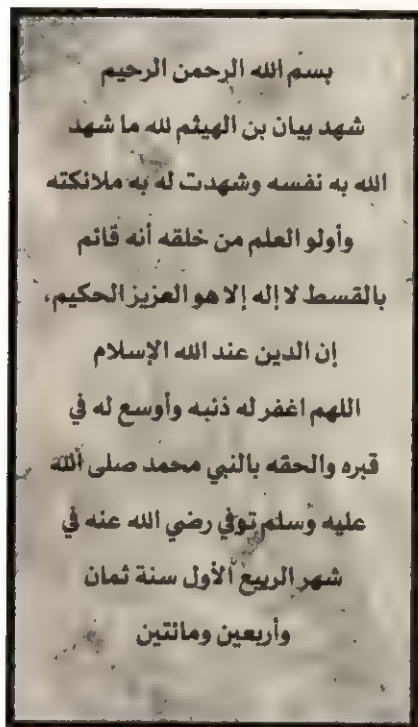 بسم الله الرحمن الرحيم
شهد بيان بن الهيثم لله ما شهد
الله به نفسه وشهدت له به ملائكته
وأولو العلم من خلقه أنه قائم
بالقسط لا إله إلا هو العزيز الحكيم،
إن الدين عند الله الإسلام
اللهم اغفر له ذنبه وأوسع له في
قبره والحقه بالنبي محمد صلى الله
عليه وسلم توفي رضي الله عنه في
شهر الربيع الأول سنة ثمان
وأربعين ومائتين